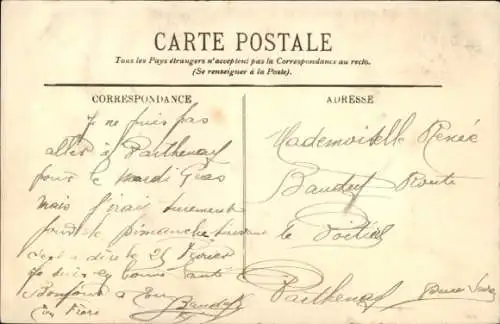 CARTE POSTALE
Tous les Pays étrangers n'acceptent pas la Correspondance au recto.
(Se renseigner à la Poste).
CORRESPONDANCE
Je ne puis pas
aller à Parthenay
pour le mardi Gras
mais j'irai surement
pour le Dimanche suivant
c'est a dire le 25 Février
Je suis en bonne santé
Bonjour a tous
ton Frère
Baudet
ADRESSE
Mademoiselle Renée
Baudet Route
de Poitiers
Parthenay
Deux Sèvres